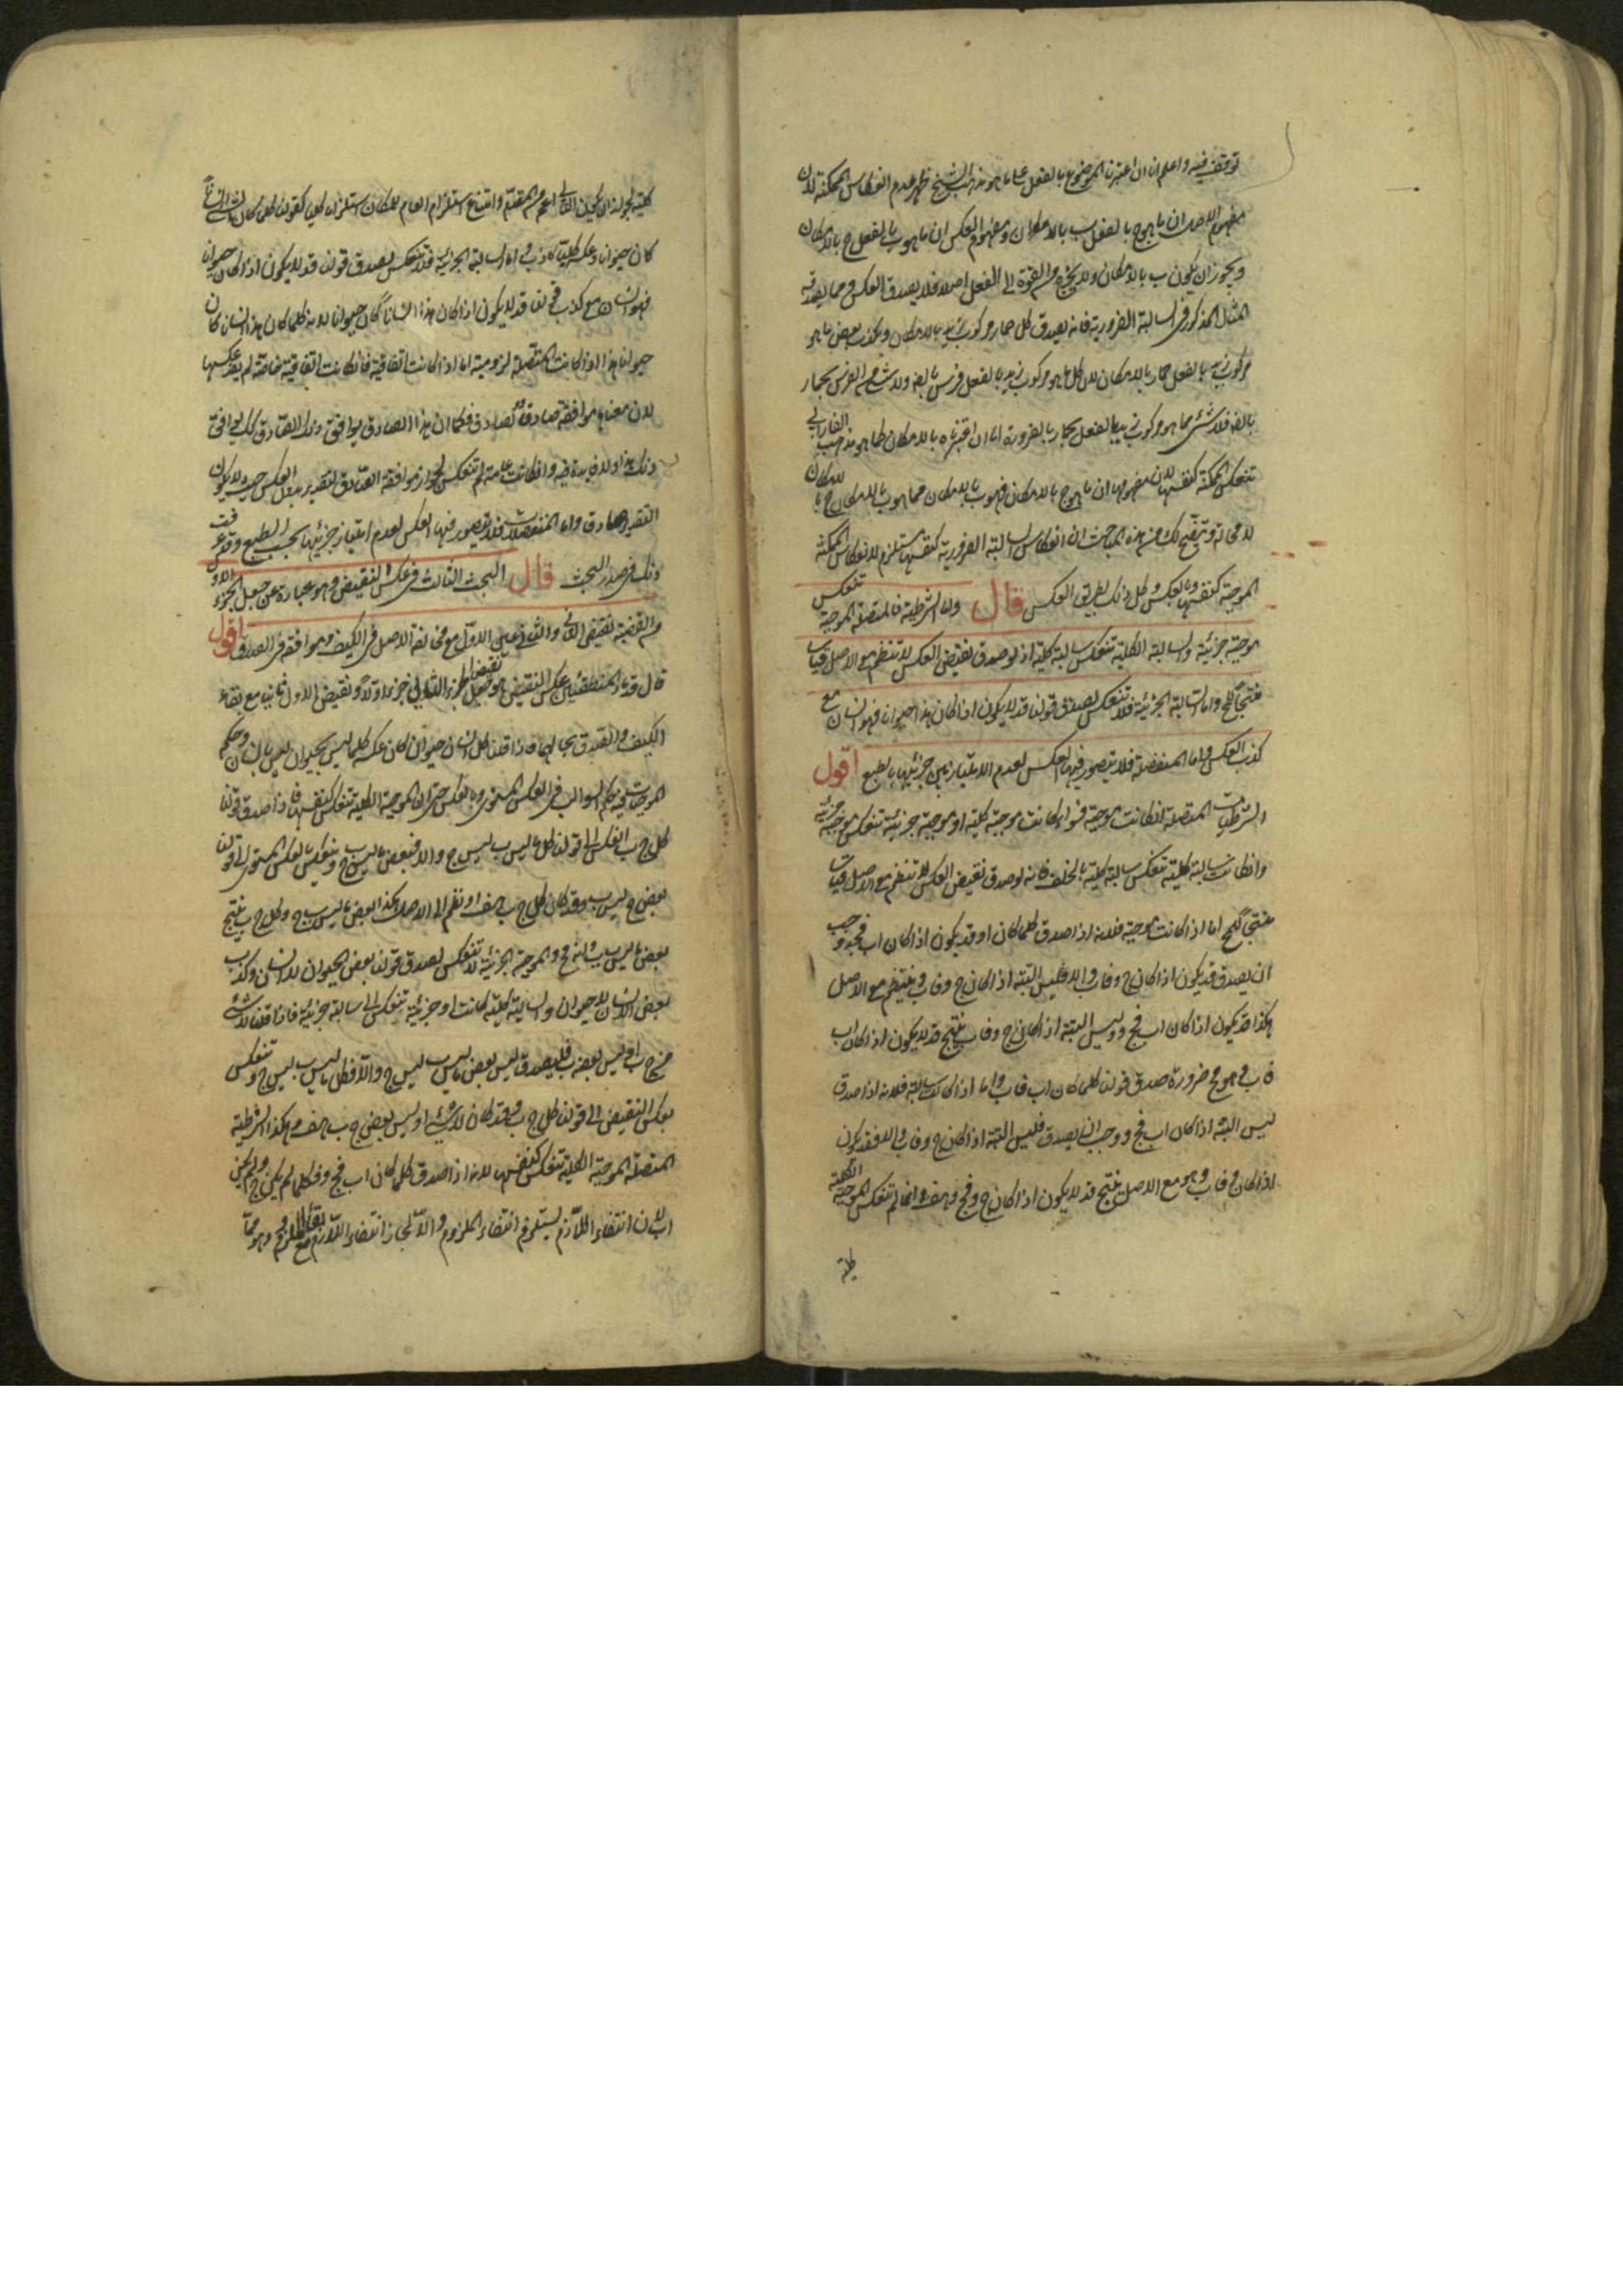 توقف فيه واعلم انا ان اعتبرنا الموضوع بالفعل على ما هو مذهب الشيخ ظهر عدم انعكاس الممكنة لان
مفهوم الاصل ان ما هو ج بالفعل ب بالامكان ومفهوم العكس ان ما هو ب بالفعل ج بالامكان
ويجوز ان يكون ب بالامكان ولا يخرج من القوة الى الفعل اصلا فلا يصدق العكس ومما يصدقه
المثال المذكور في السالبة الضرورية فانه يصدق كل حمار مركوب زيد بالامكان ويكذب بعض ما هو
مركوب زيد بالفعل حمار بالامكان لان كل ما هو مركوب زيد بالفعل فرس بالضرورة ولا شئ من الفرس بحمار
بالضرورة فلا شئ مما هو مركوب زيد بالفعل بحمار بالضرورة اما ان اعتبرناه بالامكان كما هو مذهب الفارابي
تنعكس الممكنة كنفسها لان مفهومها ان ما هو ج بالامكان فهو ب بالامكان فما هو ب بالامكان ج بالامكان
لا محالة ويتضح لك من هذه المباحث ان انعكاس السالبة الضرورية كنفسها مستلزم لانعكاس الممكنة
الموجبة كنفسها وبالعكس وكل ذلك بطريق العكس قال واما الشرطية فالمتصلة الموجبة تنعكس
موجبة جزئية والسالبة الكلية تنعكس سالبة كلية اذ لو صدق نقيض العكس لانتظم مع الاصل قياسا
منتجا للمح واما السالبة الجزئية فلا تنعكس لصدق قولنا قد لا يكون اذا كان هذا حيوانا فهو انسان مع
كذب العكس واما المنفصلة فلا يتصور فيها العكس لعدم الامتياز بين جزئيها بالطبع اقول
الشرطيات المتصلة ان كانت موجبة فسواء كانت موجبة كلية او موجبة جزئية تنعكس موجبة جزئية
وان كانت سالبة كلية تنعكس سالبة كلية بالخلف فانه لو صدق نقيض العكس لانتظم مع الاصل قياسا
منتجا للمح اما اذا كانت موجبة فلانه اذا صدق كلما كان او قد يكون اذا كان اب فجد وجب
ان يصدق قد يكون اذا كان ج د فاب والا فليس البتة اذا كان ج د فاب وينتظم مع الاصل
هكذا قد يكون اذا كان اب فج د وليس البتة اذا كان ج د فاب ينتج قد لا يكون اذا كان اب
فاب وهو مح ضرورة صدق قولنا كلما كان اب فاب واما اذا كانت سالبة فلانه اذا صدق
ليس البتة اذا كان اب فج د وجب ان يصدق فليس البتة اذا كان ج د فاب والا فقد يكون
اذا كان ج د فاب وهو مع الاصل ينتج قد لا يكون اذا كان ج د فج د هف وانما لم تنعكس الموجبة الكلية
كلية
كلية لجواز ان يكون التالي اعم من المقدم وامتناع استلزام العام للخاص استلزاما كليا كقولنا كلما كان الشئ انسانا
كان حيوانا وعكسه كليا كاذب واما السالبة الجزئية فلا تنعكس لصدق قولنا قد لا يكون اذا كان حيوانا
فهو انسان مع كذب قولنا قد لا يكون اذا كان هذا انسانا كان حيوانا لانه كلما كان هذا انسانا كان
حيوانا هذا اذا كانت المتصلة لزومية اما اذا كانت اتفاقية فان كانت اتفاقية خاصة لم يفد عكسها
لان معناها موافقة صادق لصادق فكما ان هذا الصادق يوافق ذلك الصادق كذلك يوافق
ذلك هذا ولا فايدة فيه وان كانت عامة لم تنعكس لجواز موافقة الصادق لتقدير بدون العكس حيث لا يكون
التقدير صادق واما المنفصلات فلا يتصور فيها العكس لعدم امتياز جزئيها بحسب الطبع وقد عرفت
ذلك في صدر البحث قال البحث الثالث في عكس النقيض وهو عبارة عن جعل الجزء الاول
من القضية نقيض الثاني والثاني عين الاول مع مخالفة الاصل في الكيف وموافقه في الصدق اقول
قال قدماء المنطقيين عكس النقيض هو جعل نقيض الجزء الثاني جزءا اولا ونقيض الاول ثانيا مع بقاء
الكيف والصدق بحالهما فاذا قلنا كل انسان حيوان كان عكسه كلما ليس بحيوان ليس بانسان وحكم
الموجبات فيه حكم السوالب في العكس المستوي وبالعكس حتى ان الموجبة الكلية تنعكس كنفسها فاذا صدق قولنا
كل ج ب انعكس الى قولنا كل ما ليس ب ليس ج والا فبعض ما ليس ب ج وينعكس بالعكس المستوي الى قولنا
بعض ج ليس ب وقد كان كل ج ب هف او نظم الى الاصل هكذا بعض ما ليس ب ج وكل ج ب ينتج
بعض ما ليس ب ب وانه مح والموجبة الجزئية لا تنعكس لصدق قولنا بعض الحيوان لا انسان وكذب
بعض الانسان لا حيوان والسالبة كلية كانت او جزئية تنعكس الى سالبة جزئية فاذا قلنا لا شئ
من ج ب او ليس بعضه ب فليصدق ليس بعض ما ليس ب ليس ج والا فكل ما ليس ب ليس ج وتنعكس
بعكس النقيض الى قولنا كل ج ب وقد كان لا شئ او ليس بعض ج ب هف وهكذا الشرطية
المتصلة الموجبة الكلية تنعكس كنفسها لانه اذا صدق كلما كان اب فج د فكلما لم يكن ج د لم يكن
اب لان انتفاء اللازم يستلزم انتفاء الملزوم والا لجاز انتفاء اللازم مع بقاء الملزوم وهو مما